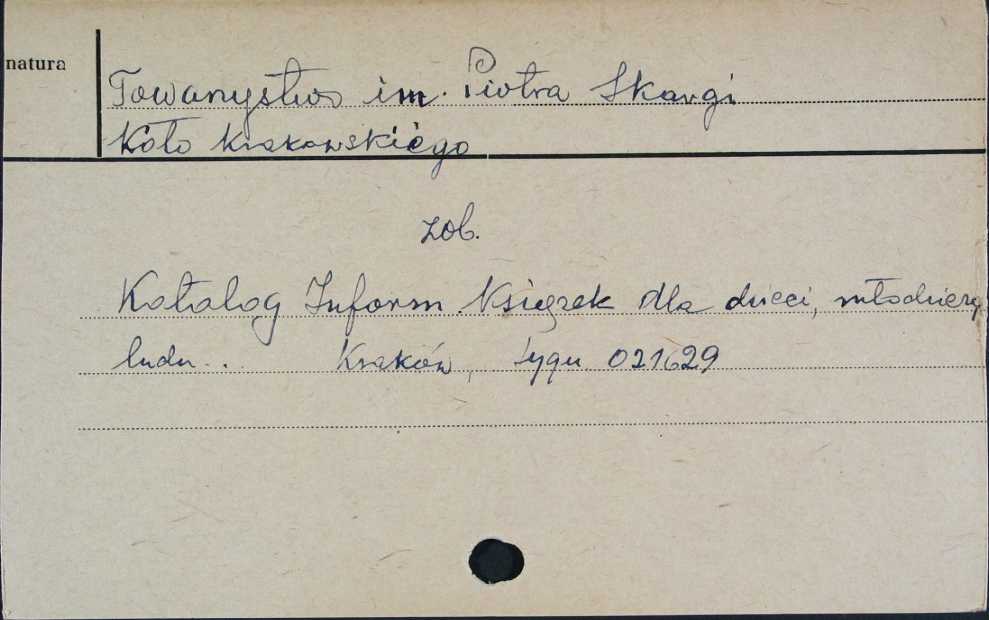 natura
Towarzystwo im. Piotra Skargi
Koło Krakowskiego
zob.
Katalog Inform. Książek dla dzieci, młodzieży
ludu... Kraków, sygn 021629